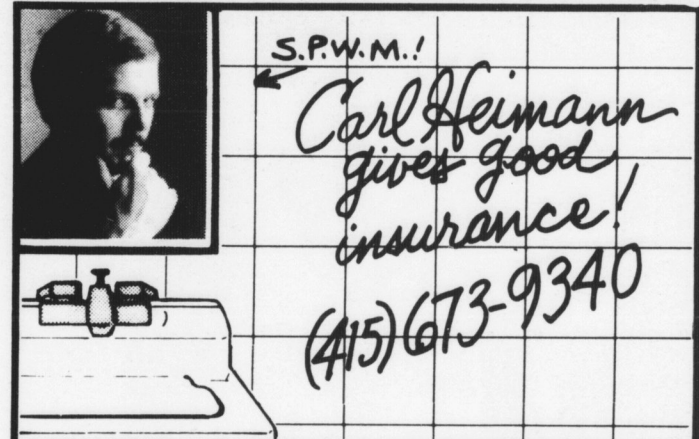 S.P.W.M.!
Carl Heimann
gives good
insurance!
(415) 673-9340